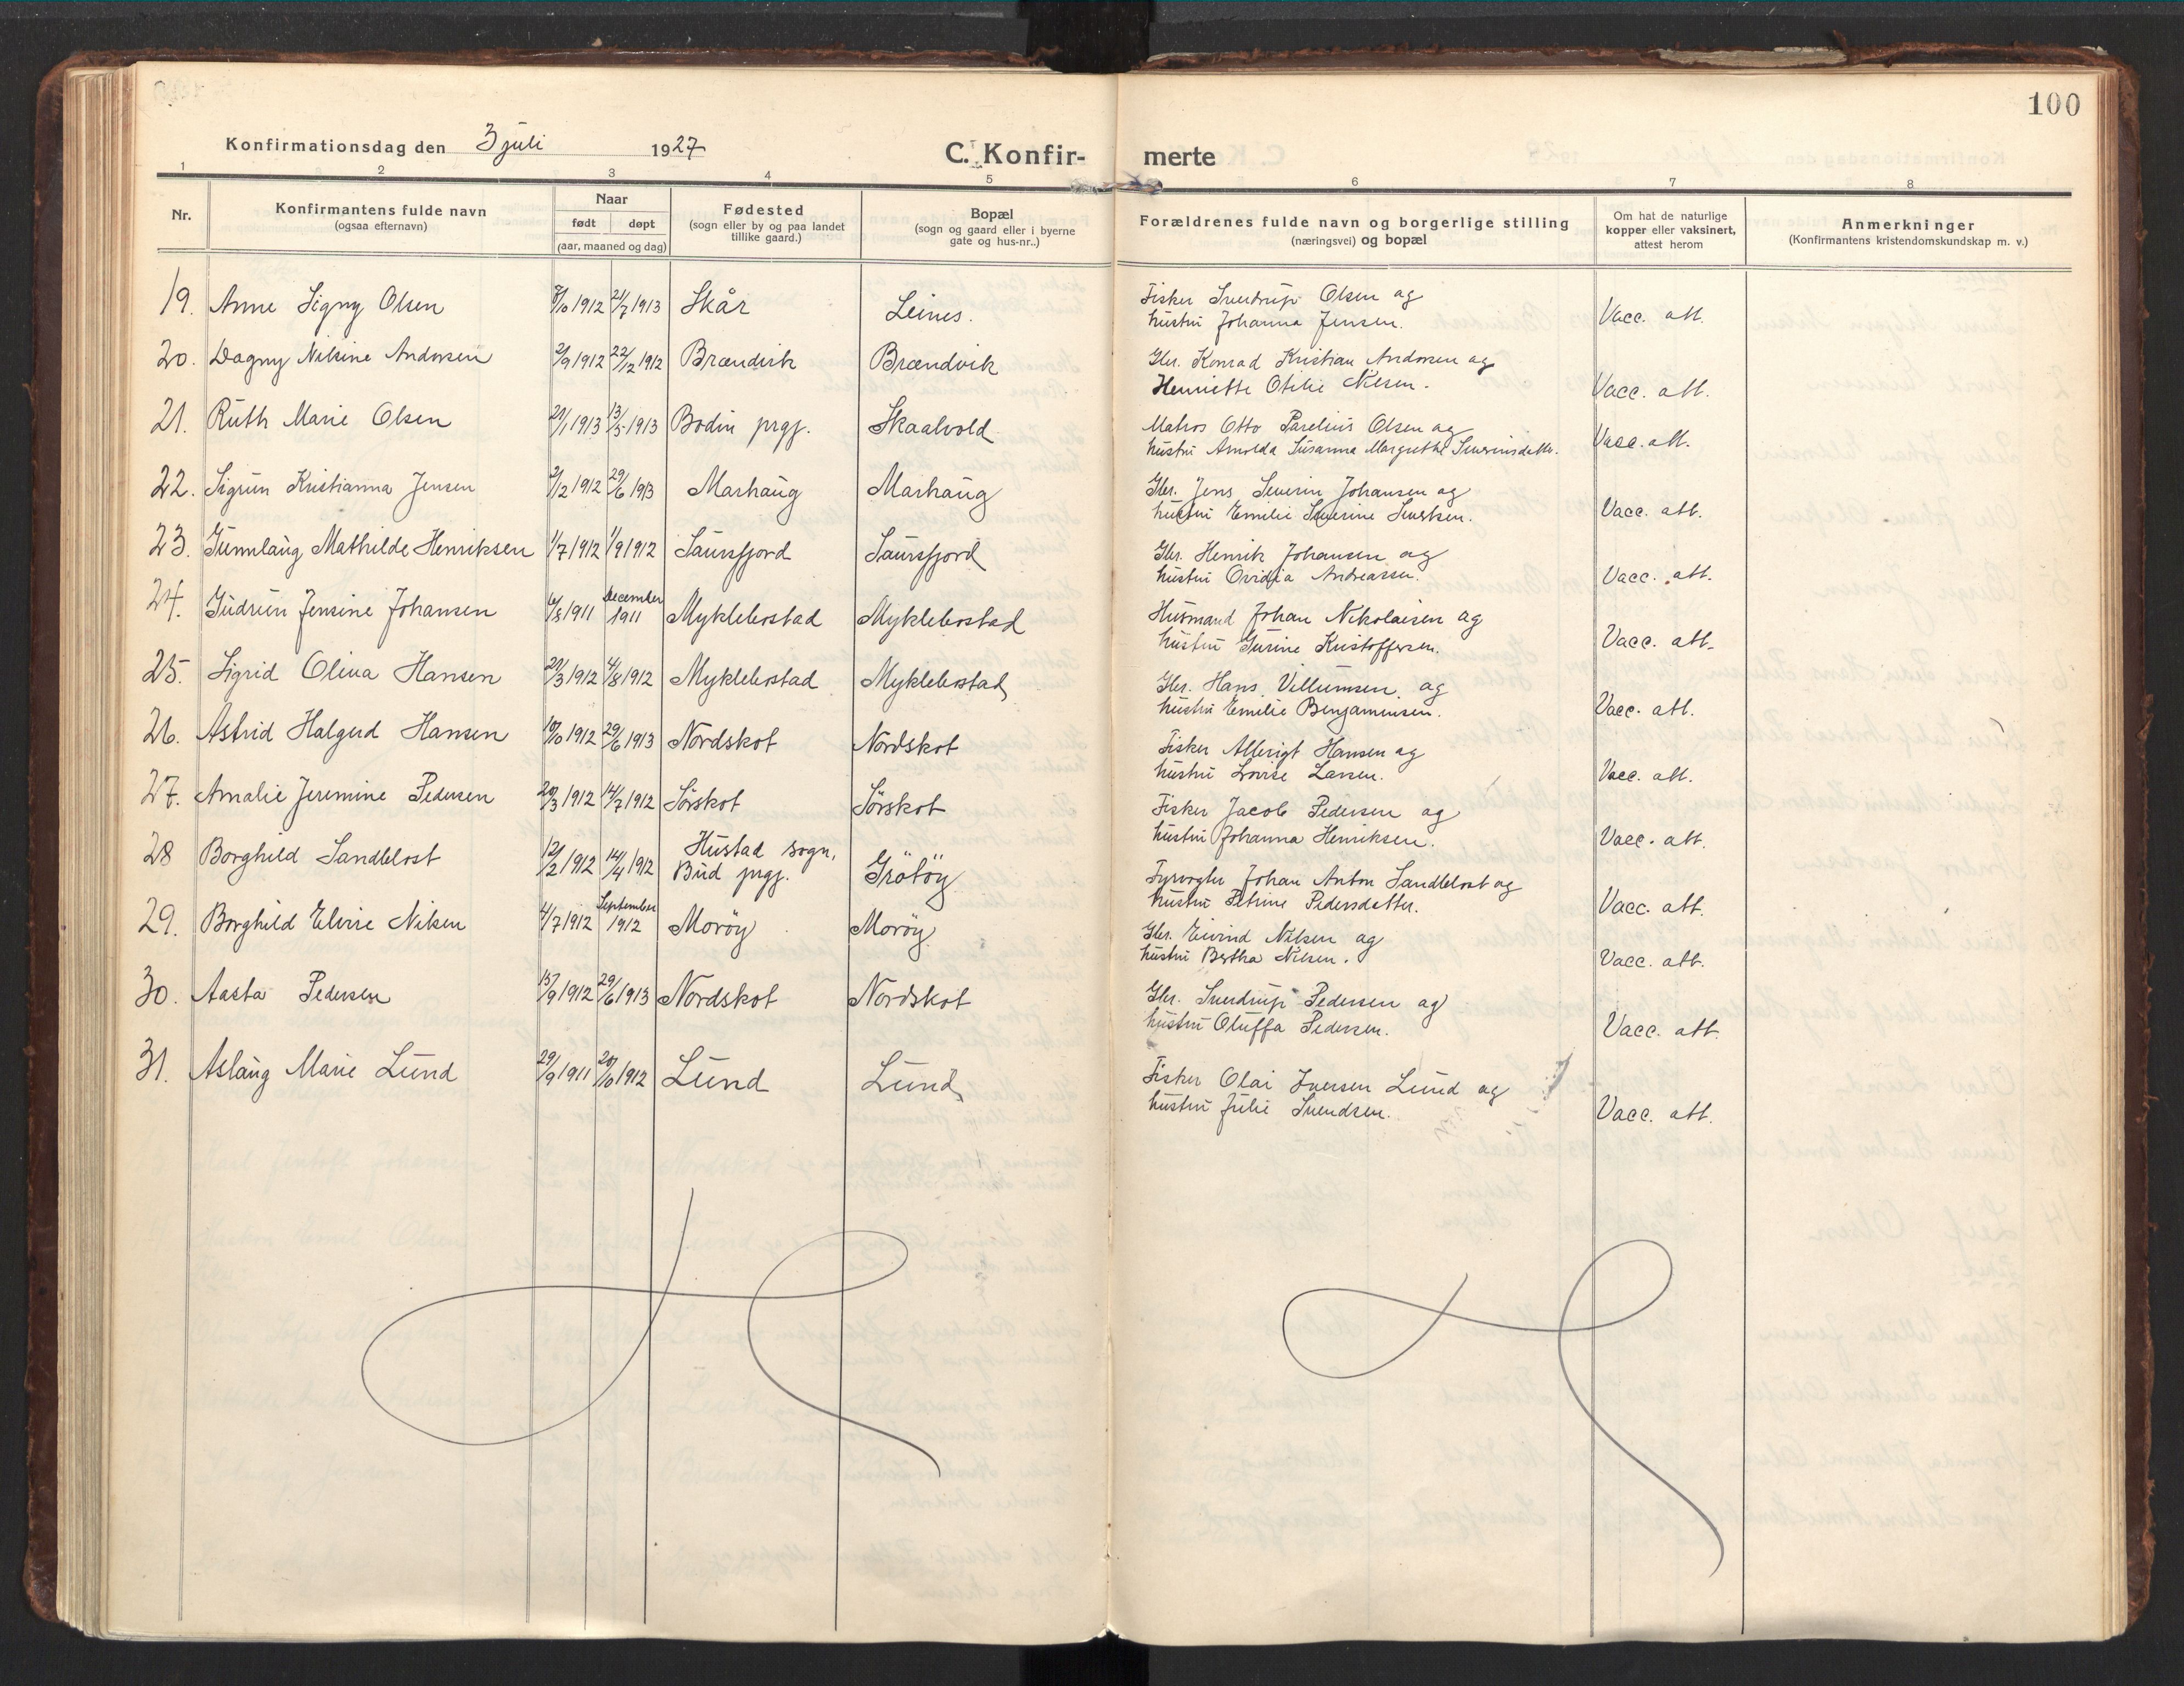 100
Konfirmationsdag den 3 juli 1927
C. Konfir- merte
1 2 3 4 5 6 7 8
Nr.
Konfirmantens fulde navn
(ogsaa efternavn)
Naar
født døpt
(aar, maaned og dag)
Fødested
(sogn eller by og paa landet
tillike gaard.)
Bopæl
(sogn og gaard eller i byerne
gate og hus-nr..)
Forældrenes fulde navn og borgerlige stilling
(næringsvei) og bopæl
Om hat de naturlige
kopper eller vaksinert,
attest herom
Anmerkninger
(Konfirmantens kristendomskundskap m. v.)
19. Anne Signy Olsen /10 1912 21/7 1913 Skår Leines. Fisker Sverdrup Olsen og
hustru Johanna Jensen. Vacc. att.
20. Dagny Nilsine Andorsen 2/9 1912 22/12 1912 Brændvik Brændvik Gbr. Konrad Kristian Andorsen og
Henriette Otilie Nilsen. Vacc. att.
21. Ruth Marie Olsen 21/1 1913 13/5 1913 Bodin prgj. Skaalvold Matros Otto Parelius Olsen og
hustru Arnolda Susanna Margrethe Severinsdatter. Vacc. att.
22. Sigrun Kristianna Jensen 2/12 1912 29/6 1913 Marhaug Marhaug Gbr. Jens Severin Johansen og
hustru Emilie Severine Sivertsen. Vacc. att.
23. Gunnlaug Mathilde Henriksen 1/7 1912 1/9 1912 Saursfjord Saursfjord Gbr. Henrik Johansen og
hustru Ovidia Andreassen. Vacc. att.
24. Gudrun Jensine Johansen 6/8 1911 December
1911 Myklebostad Myklebostad Husmand Johan Nikolaisen og
hustru Gurine Kristoffersen. Vacc. att.
25. Sigrid Oliva Hansen 21/3 1912 4/8 1912 Myklebostad Myklebostad Gbr. Hans Villumsen og
hustru Emilie Benjaminsen. Vacc. att.
26. Astrid Halgerd Hansen 10/10 1912 29/6 1913 Nordskot Nordskot Fisker Allerigt Hansen og
hustru Lovise Larsen. Vacc. att.
27. Amalie Jeremine Pedersen 20/3 1912 14/7 1912 Sörskot Sörskot Fisker Jacob Pedersen og
hustru Johanna Henriksen. Vacc. att.
28 Borghild Sandblost 12/2 1912 14/4 1912 Hustad sogn,
Bud prgj. Grötöy Fyrvogter Johan Anton Sandblost og
hustru Petrine Pedersdatter. Vacc. att.
29. Borghild Elvise Nilsen 4/7 1912 September
1912 Moröy Moröy Gbr. Eivind Nilsen og
hustru Bertha Nilsen. Vacc. att.
30. Aasta Pedersen 15/9 1912 29/6 1913 Nordskot Nordskot Gbr. Sverdrup Pedersen og
hustru Oluffa Pedersen. Vacc. att.
31. Aslaug Marie Lund 29/9 1911 20/10 1912 Lund Lund Fisker Olai Iversen Lund og
hustru Julie Svendsen. Vacc. att.